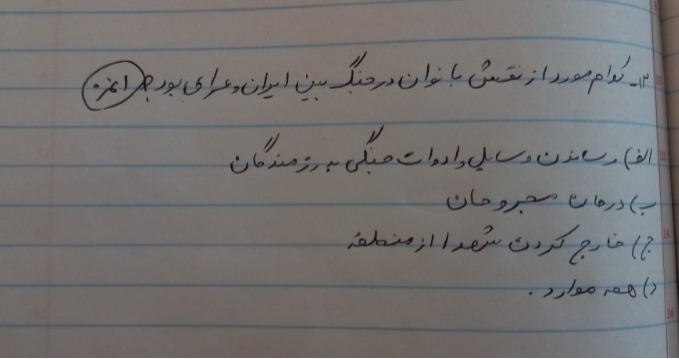 ۱۳- کدام مورد از نقش بانوان در جنگ بین ایران و عراق بود؟ (۱نمره)
الف) رساندن وسایل و ادوات جنگی به رزمندگان
ب) درمان مجروحان
ج) خارج کردن شهدا از منطقه
د) همه موارد.